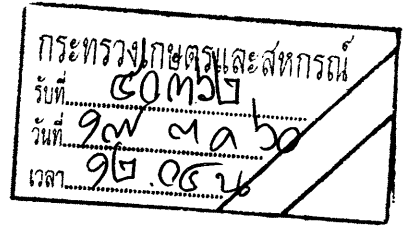 กระทรวงเกษตรและสหกรณ์
รับที่ ๔๐๓๖๒
วันที่ ๑๗ ต ค ๖๐
เวลา ๑๒.๐๔ น